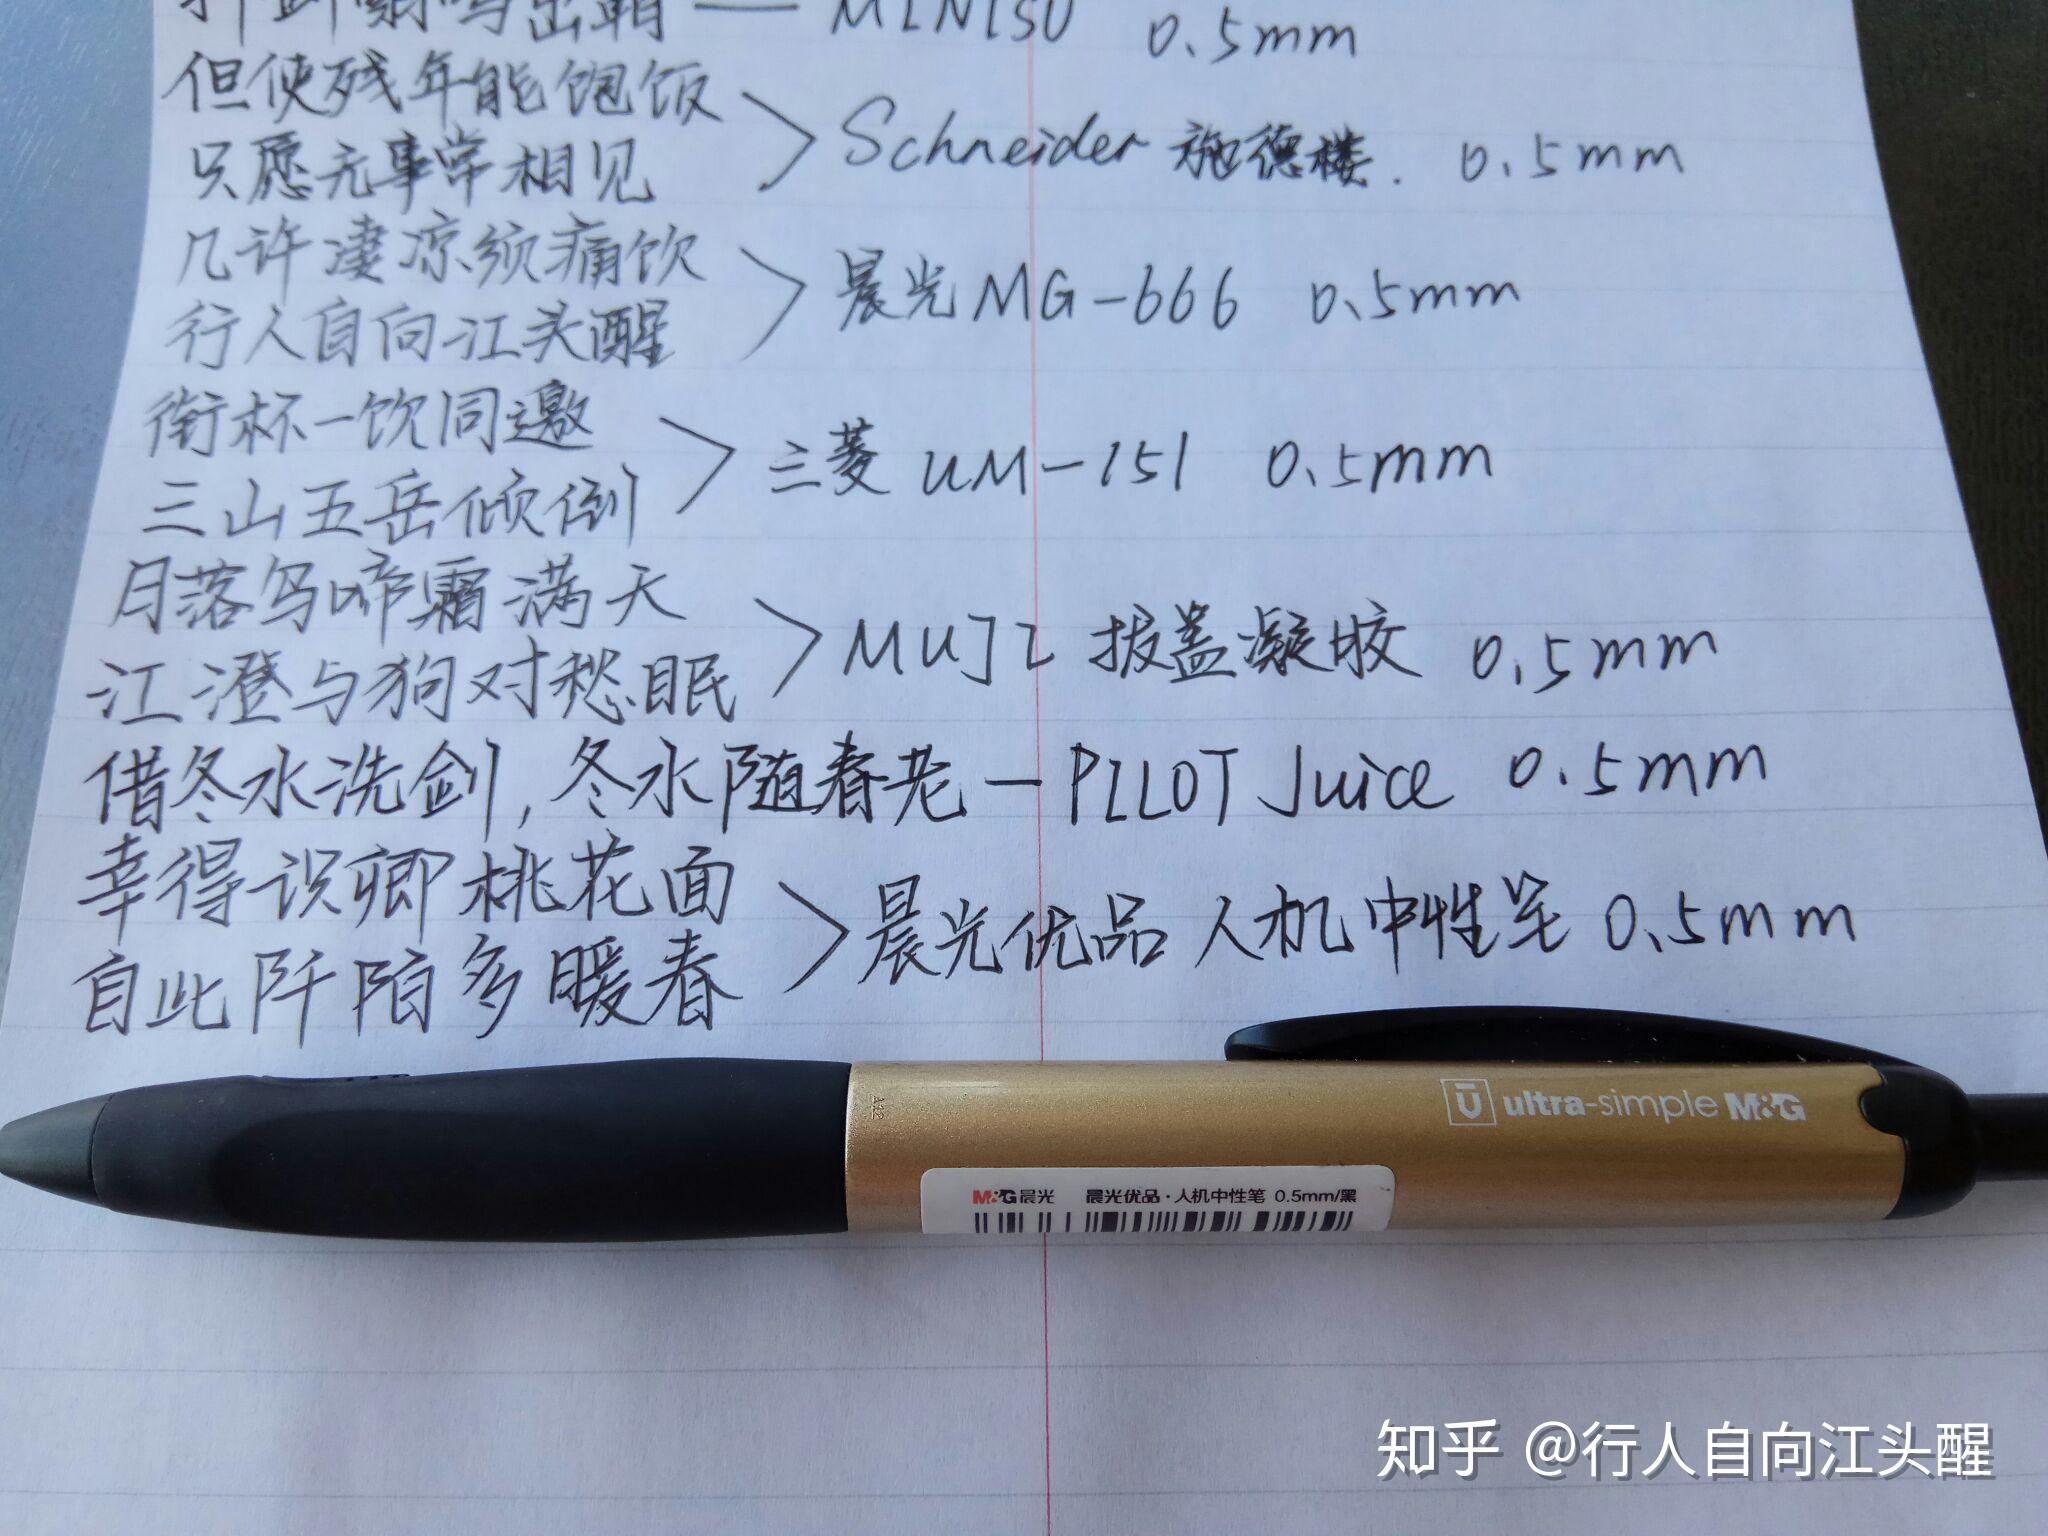 MINISO 0.5mm
但使残年能饱饭
只愿无事常相见
Schneider 施德楼. 0.5mm
几许凄凉须痛饮
行人自向江头醒
晨光 MG-666 0.5mm
衔杯一饮同邀
三山五岳倾倒
三菱 UM-151 0.5mm
月落乌啼霜满天
江澄与狗对愁眠
MUJI 拔盖凝胶 0.5mm
借冬水洗剑,冬水随春老 — PILOT Juice 0.5mm
幸得识卿桃花面
自此阡陌多暖春
晨光优品 人机中性笔 0.5mm
A12
Ū ultra-simple M&G
M&G晨光 晨光优品·人机中性笔 0.5mm/黑
知乎 @行人自向江头醒